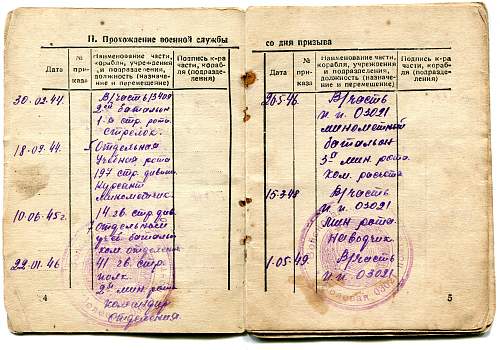 II. Прохождение военной службы
Дата
№ приказа
Наименование части,
корабля, учреждения
и подразделения,
должность (назначение
и перемещение)
Подпись к-ра
части, корабля
(подразделения)
В/часть
2ой батальон
1-а стр. рота.
стрелок.
Отдельная
Учебная рота
197 стр. дивиз.
Курсант
Минометчик
10.06.45г.
14 гв. стр. див.
Отдельный
учеб. баталь
ком. отделения
22.01.46
41 гв. стр.
полк.
2ая мин. рота
командир
отделения
4
со дня призыва
Дата
№ приказа
Наименование части,
корабля, учреждения
и подразделения,
должность (назначение
и перемещение)
Подпись к-ра
части, корабля
(подразделения)
В/часть
п.п. 03021
минометный
батальон
мин. рота.
ком. расчета
15.3.48
В/часть
п.п. 03021
мин рота.
Наводчик.
1.05.49
В/часть
п.п. 03021
5